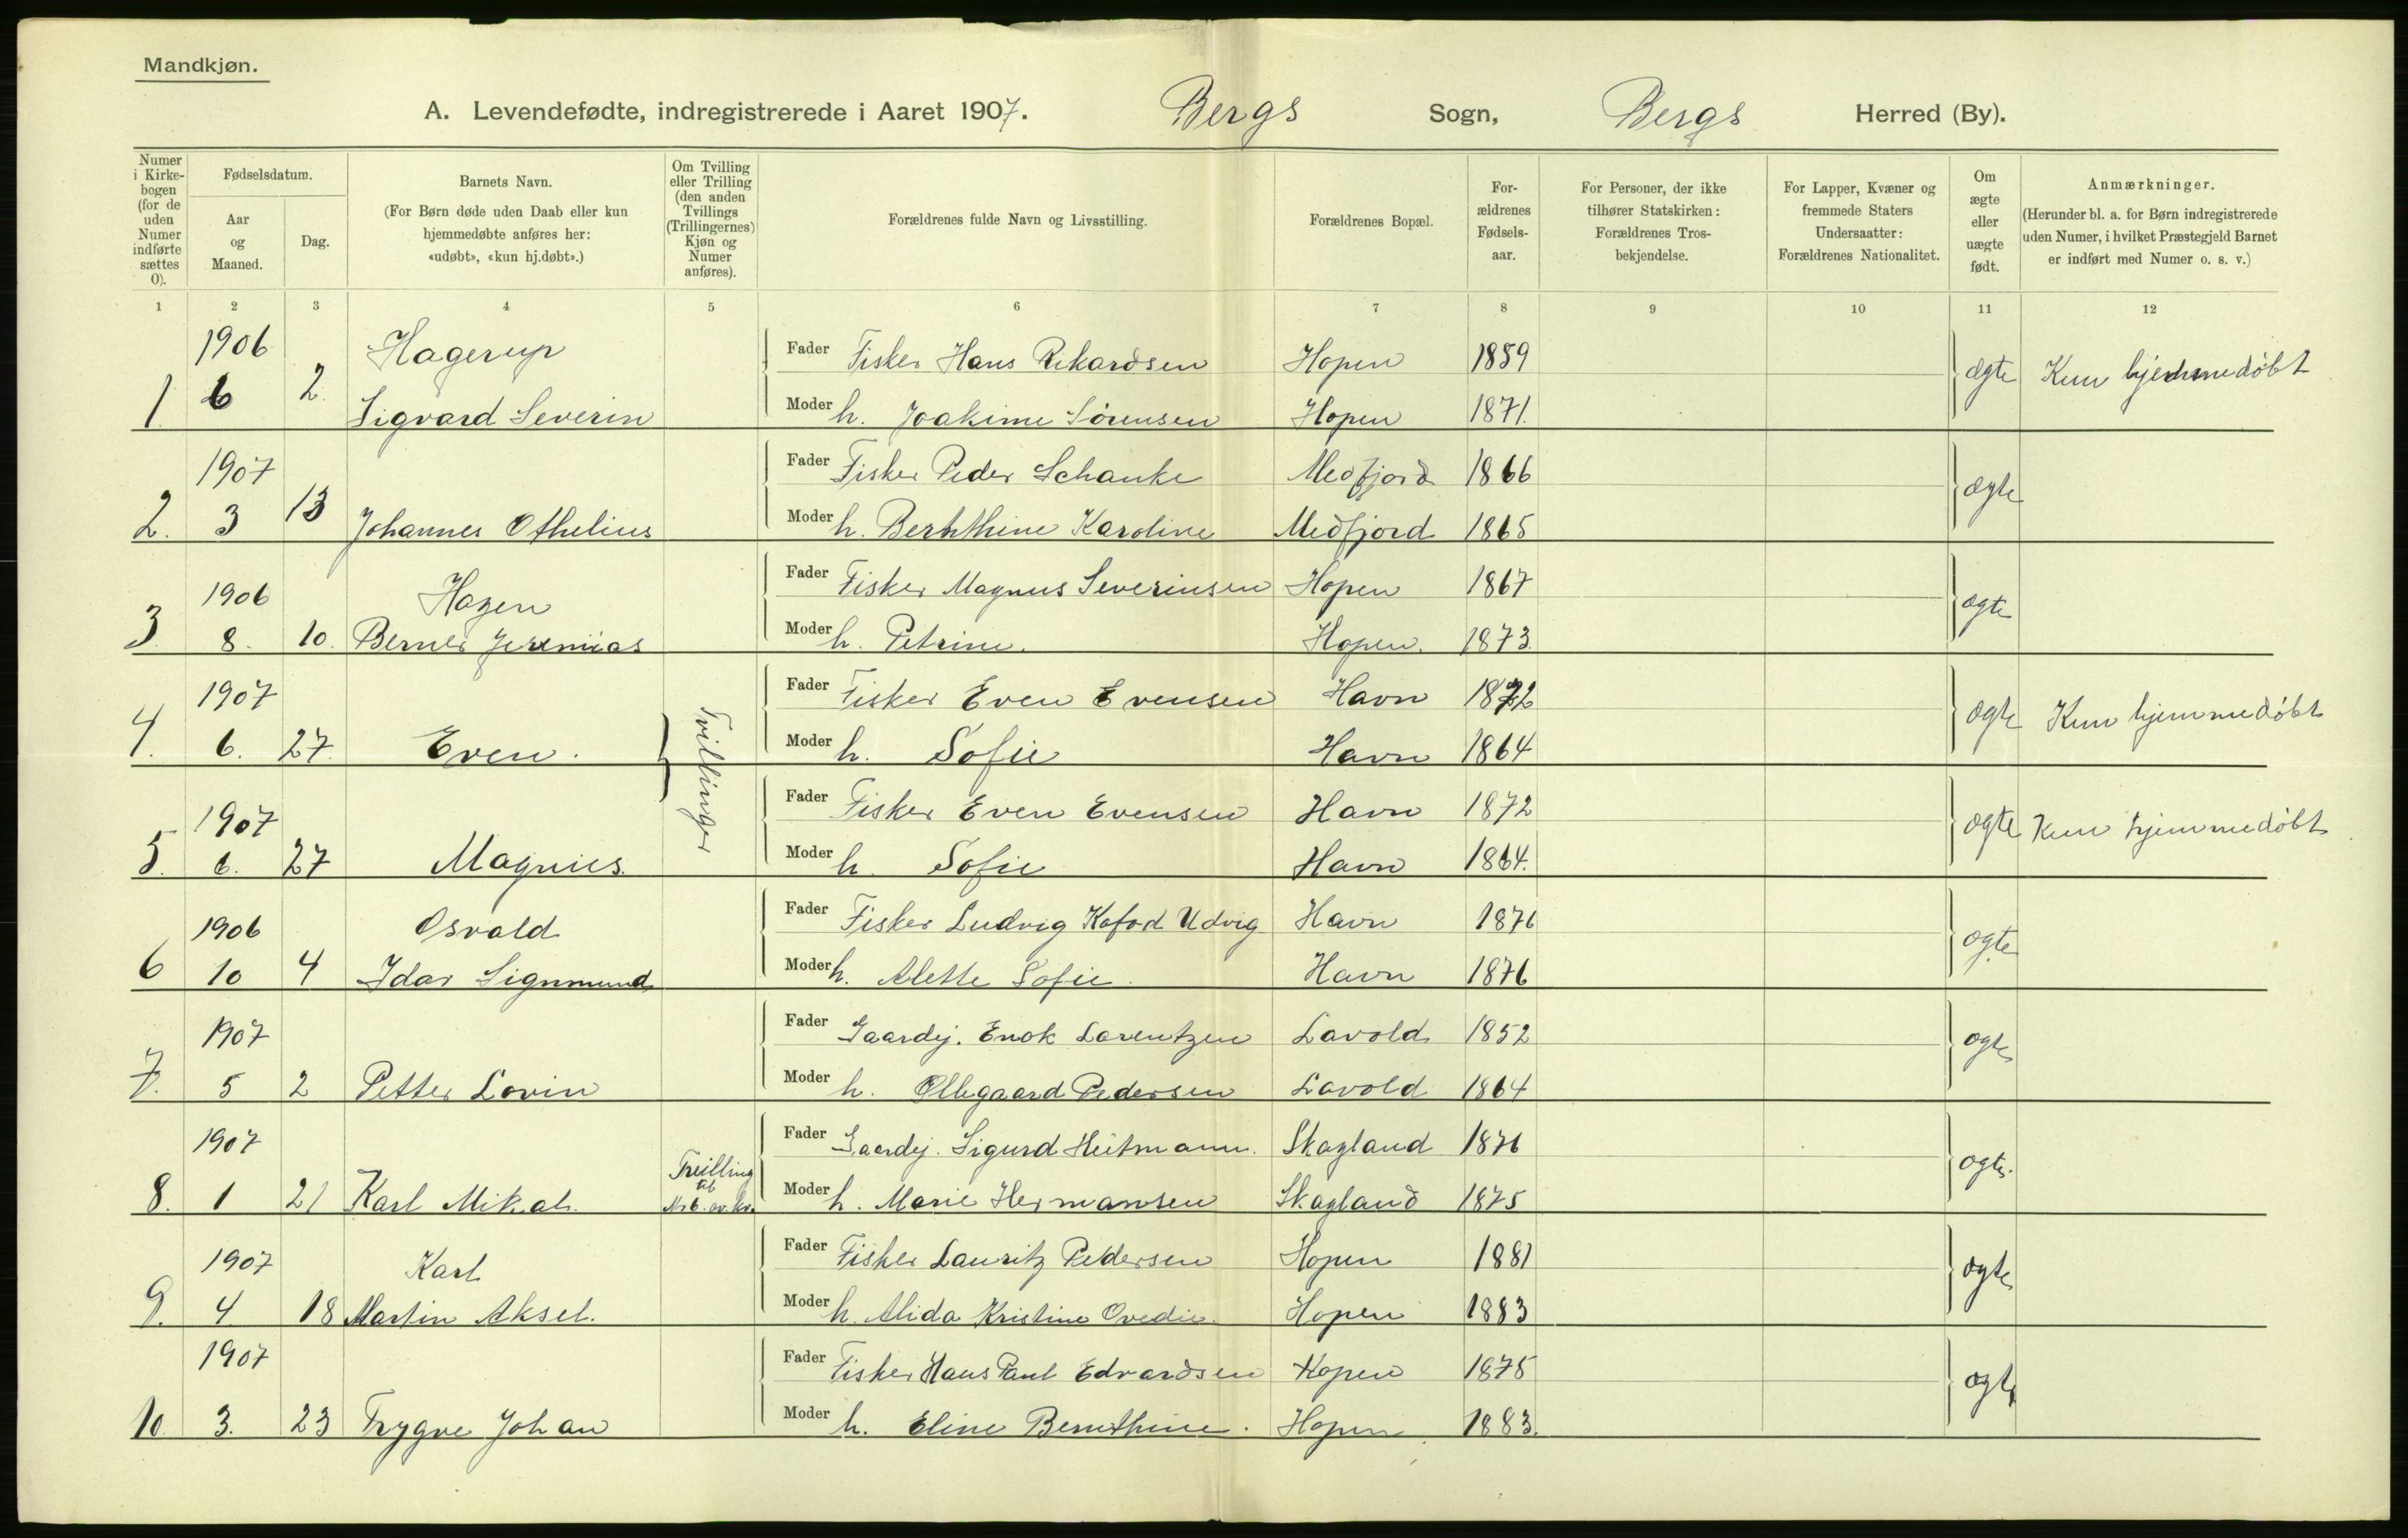 Mandkjøn.
A. Levendefødte, indregistrerede i Aaret 1907. Bergs Sogn, Bergs Herred (By).
Numer i Kirkebogen (for de uden Numer indførte sættes 0).
Fødselsdatum.
Aar og Maaned.
Dag.
Barnets Navn.
(For Børn døde uden Daab eller kun hjemmedøbte anføres her: «udøbt», «kun hj.døbt».)
Om Tvilling eller Trilling (den anden Tvillings (Trillingernes) Kjøn og Numer anføres).
Forældrenes fulde Navn og Livsstilling.
Forældrenes Bopæl.
Forældrenes Fødselsaar.
For Personer, der ikke tilhører Statskirken: Forældrenes Trosbekjendelse.
For Lapper, Kvæner og fremmede Staters Undersaatter: Forældrenes Nationalitet.
Om ægte eller uægte født.
Anmærkninger.
(Herunder bl. a. for Børn indregistrerede uden Numer, i hvilket Præstegjeld Barnet er indført med Numer o. s. v.)
1 2 3 4 5 6 7 8 9 10 11 12
1906 Hagerup Fader Fisker Hans Rikardsen Hopen 1859 ægte Kun hjemmedøbt
1 6 2. Sigvard Severin Moder h. Joakime Sørensen Hopen 1871.
1907 Fader Fisker Peder Schanke Medfjord 1866 ægte
2. 3 13 Johannes Othelius Moder h. Karoline Medfjord 1865
1906 Hagen Fader Fisker Magnus Severinsen Hopen 1867 ægte
3. 8. 10. Berner Jeremias Moder h. Petrine. Hopen. 1873.
1907 Fader Fisker Even Evensen Havn 1872 ægte Kun hjemmedøbt
4. 6. 27. Even. Tvillinger Moder h. Sofie Havn 1864
1907 Fader Fisker Even Evensen Havn 1872 ægte Kun hjemmedøbt
5. 6. 27 Magnus. Moder h. Sofie Havn 1864.
1906 Osvald Fader Fisker Ludvig Kofod Udvig Havn 1876 ægte
6 10 4 Idar Sigmund Moder h. Alette Sofie. Havn 1876
1907 Fader Gaardej. Enok Lorentzen Lavold 1852 ægte
7. 5 2 Petter Lovin Moder h. Ollegaard Pedersen Lavold 1864
1907 Fader Gaardej. Sigurd Heitmann. Skagland 1876 ægte.
8. 1 21 Karl Mikal. Tvilling til Nr 6. av. kv. Moder h. Marie Hermansen Skagland 1875
1907 Karl Fader Fisker Lauritz Pedersen Hopen 1881 ægte
9. 4 18 Martin Aksel. Moder h. Alida Kristine Ovedie. Hopen 1883
1907 Fader Fisker Hans Paul Edvardsen Hopen 1875 ægte
10. 3. 23 Trygve Johan Moder h. Eline Bernthine. Hopen 1883.